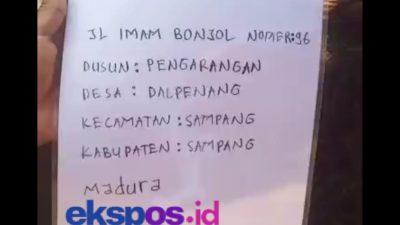 JL IMAM BONJOL NOMER:96
DUSUN : PENGARANGAN
DESA : DALPENANG
KECAMATAN : SAMPANG
KABUPATEN : SAMPANG
Madura
ekspos.id